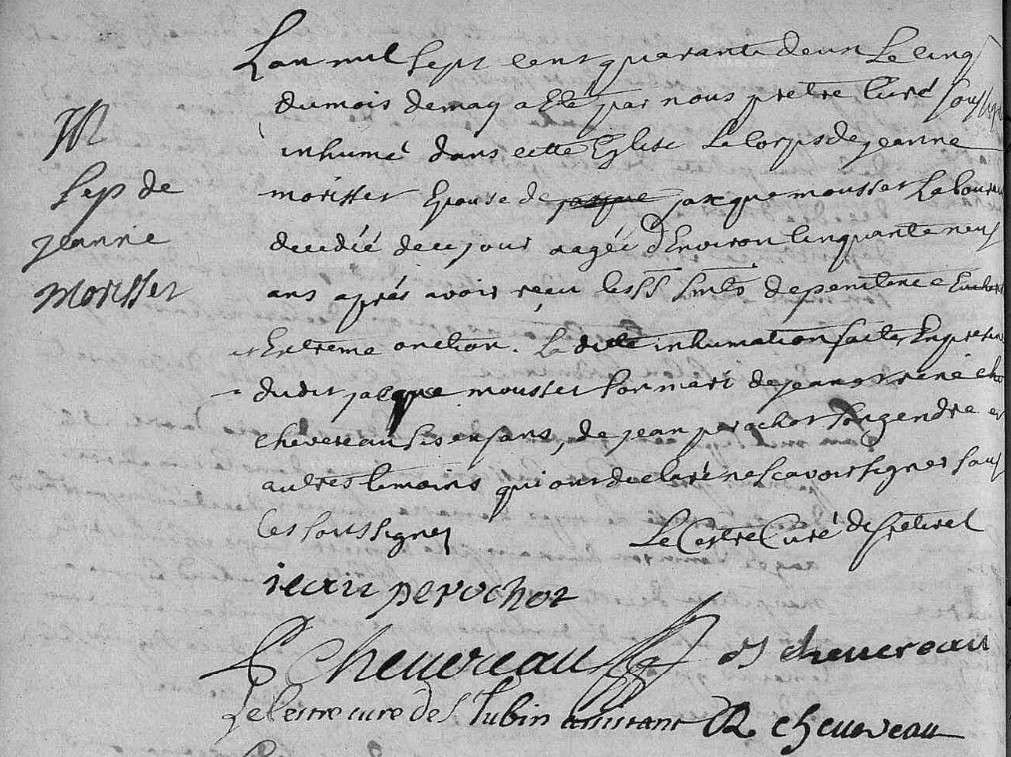 M
Sep de
jeanne
morisset
Lan mil sept cent quarante deux Le cinq
dumois demay a Eté par nous pretre Curé souss
inhumé dans cette Eglise Le Corps de jeanne
morisset Epouse de jacque jacque mousset Laboureu
decedée de ce jour aagée d'Environ Cinquante neuf
ans aprés avoir reçu les SS Smts depenitence Euchar
et Extreme onction. La ditte inhumation faite En presen
dudit jacque mousset son mari de jean et rené che
chevereau ses enfans, de jean perochot son gendre et
autres temoins qui ont declaré ne scavoir signer sauf
les soussignez Le Curé de
jean perochot
Chevereau chevereau
Le curé de St Aubin assistant R chevereau